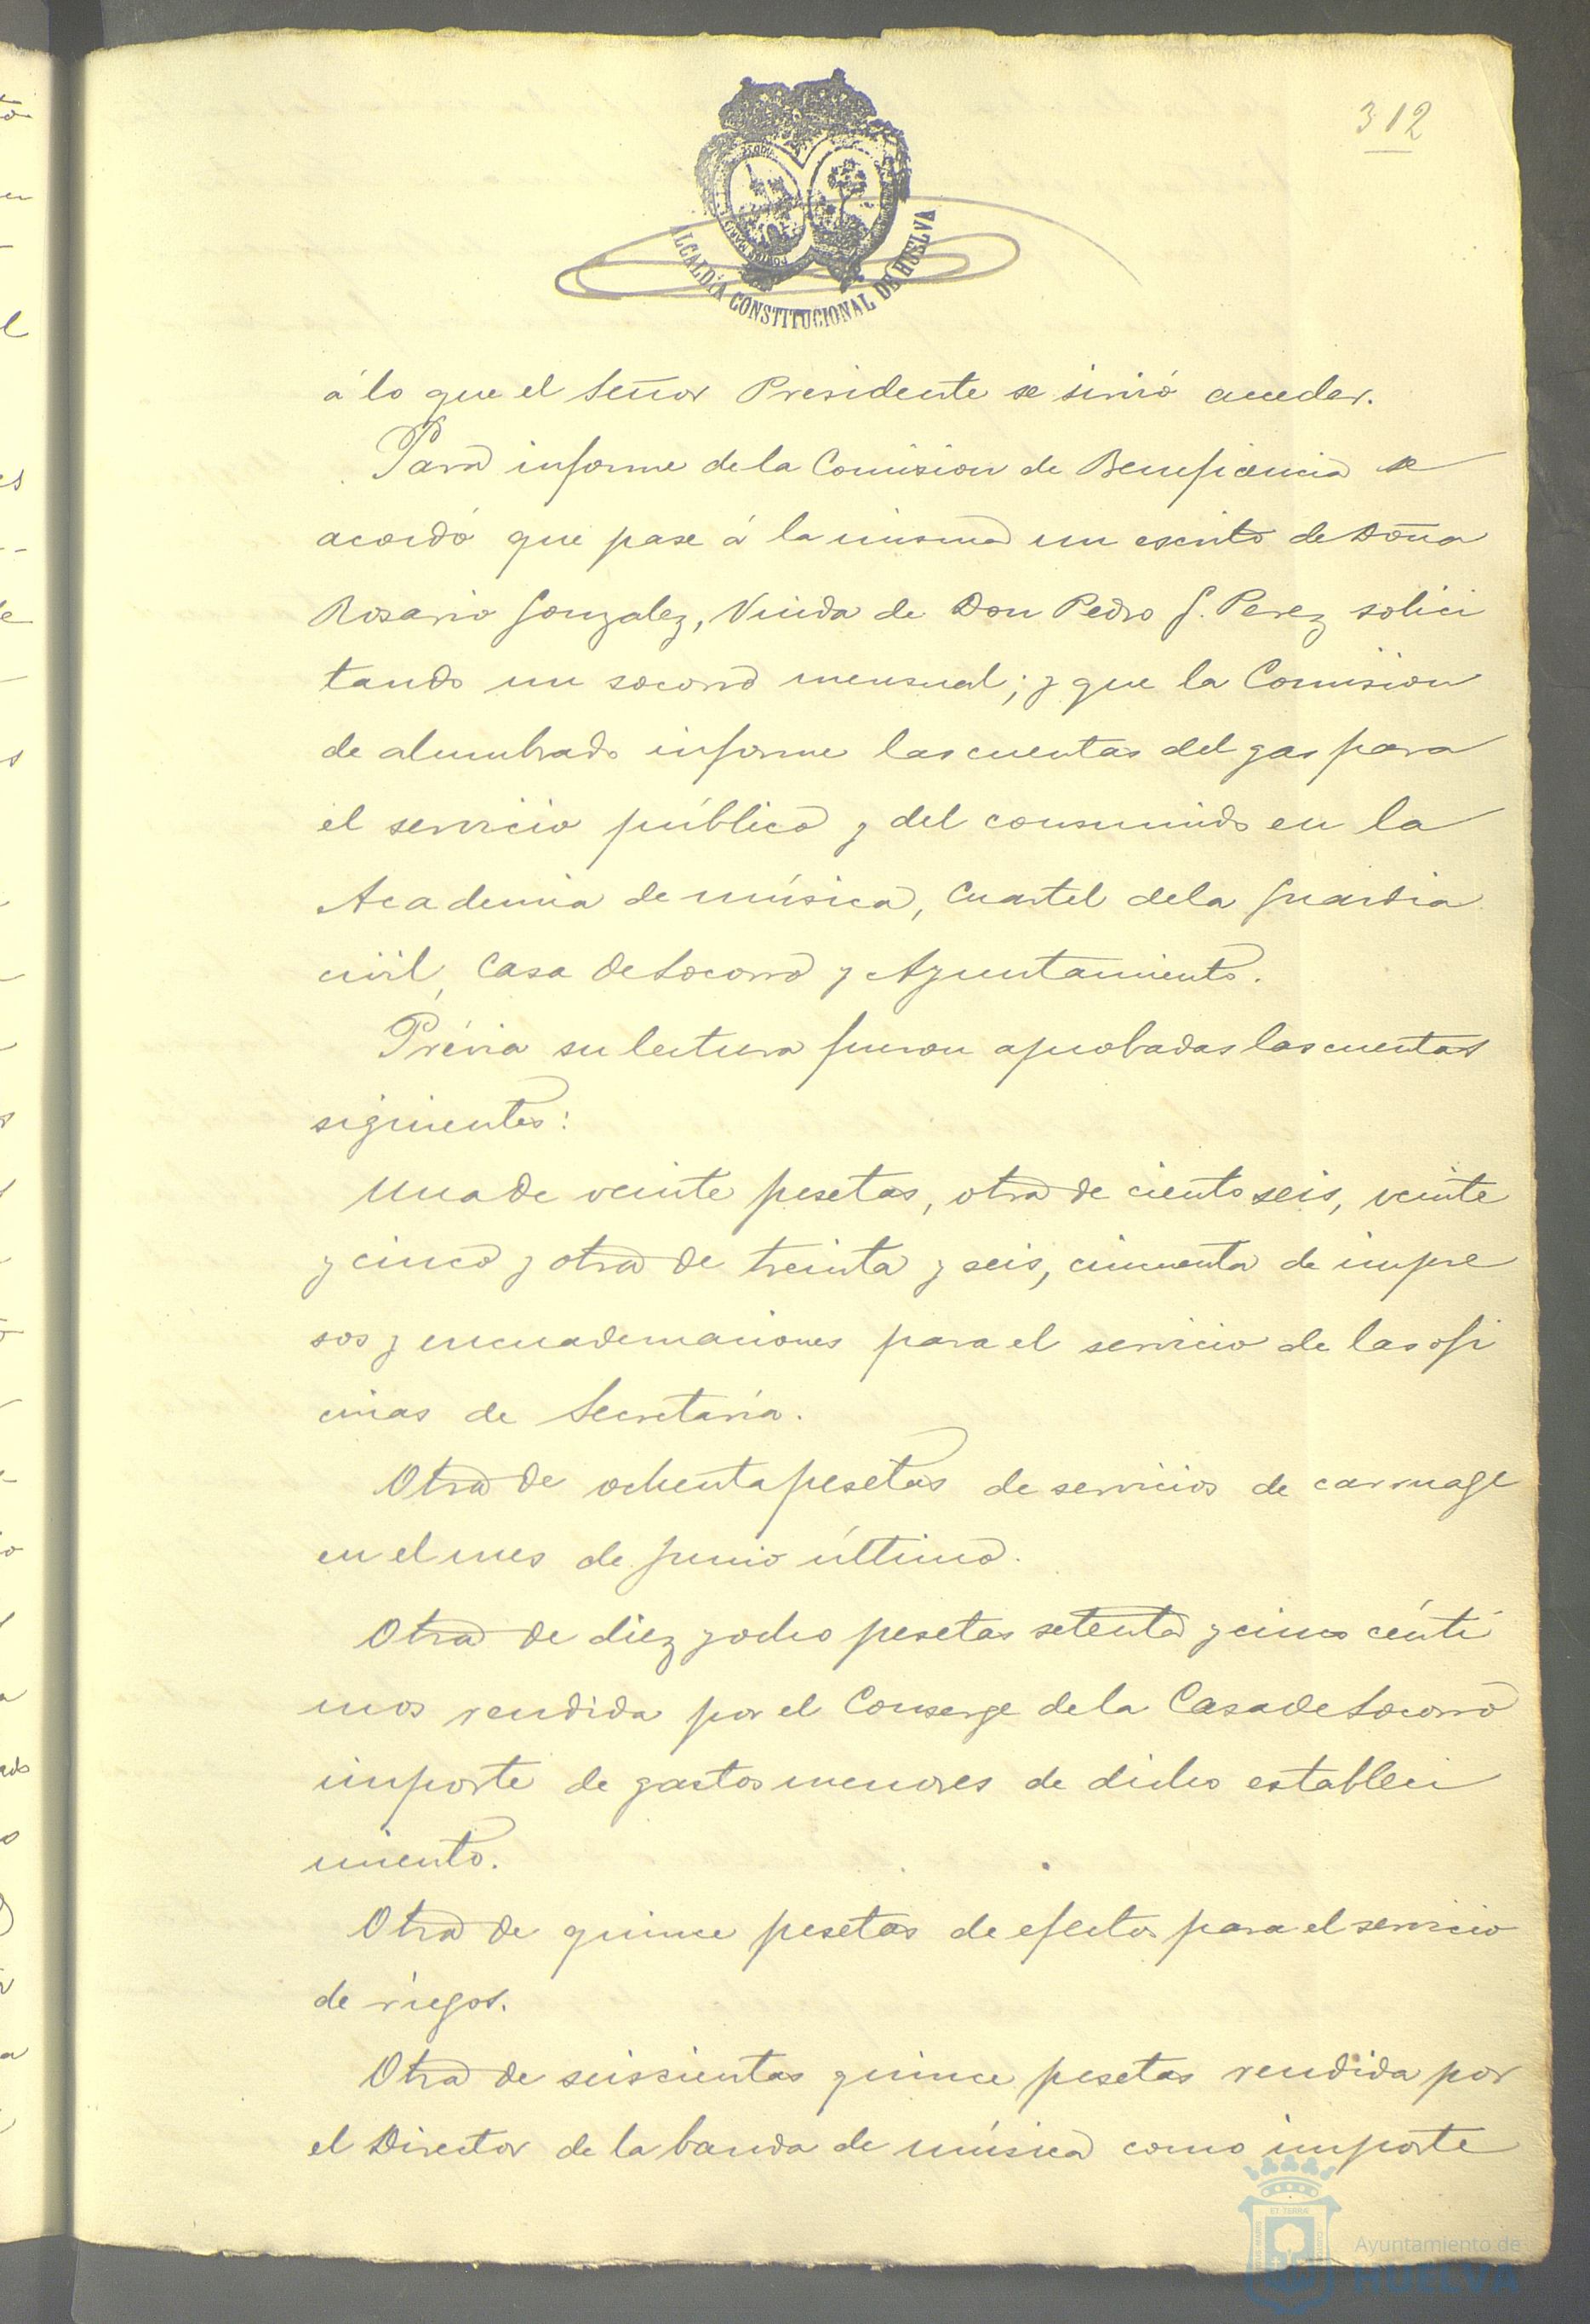 312
ALCALDÍA CONSTITUCIONAL DE HUELVA
á lo que el Señor Presidente se sirvió acceder.
Para informe de la Comision de Beneficencia se
acordó que pase á la misma un escrito de Doña
Rosario Gonzalez, Viuda de Don Pedro G. Perez solici
tando un socorro mensual; y que la Comision
de alumbrado informe las cuentas del gas para
el servicio público y del consumido en la
Academia de música, Cuartel de la Guardia
civil, Casa de Socorro y Ayuntamiento.
Prévia su lectura fueron aprobadas las cuentas
siguientes:
Una de veinte pesetas, otra de ciento seis, veinte
y cinco y otra de treinta y seis, cincuenta de impre
sos y encuadernaciones para el servicio de las ofi
cinas de Secretaría.
Otra de ochenta pesetas de servicios de carruage
en el mes de Junio último.
Otra de diez y ocho pesetas setenta y cinco cénti
mos rendida por el Conserge de la Casa de Socorro
importe de gastos menores de dicho estableci
miento.
Otra de quince pesetas de efectos para el servicio
de riegos.
Otra de seiscientas quince pesetas rendida por
el Director de la banda de música como importe
Ayuntamiento de
HUELVA